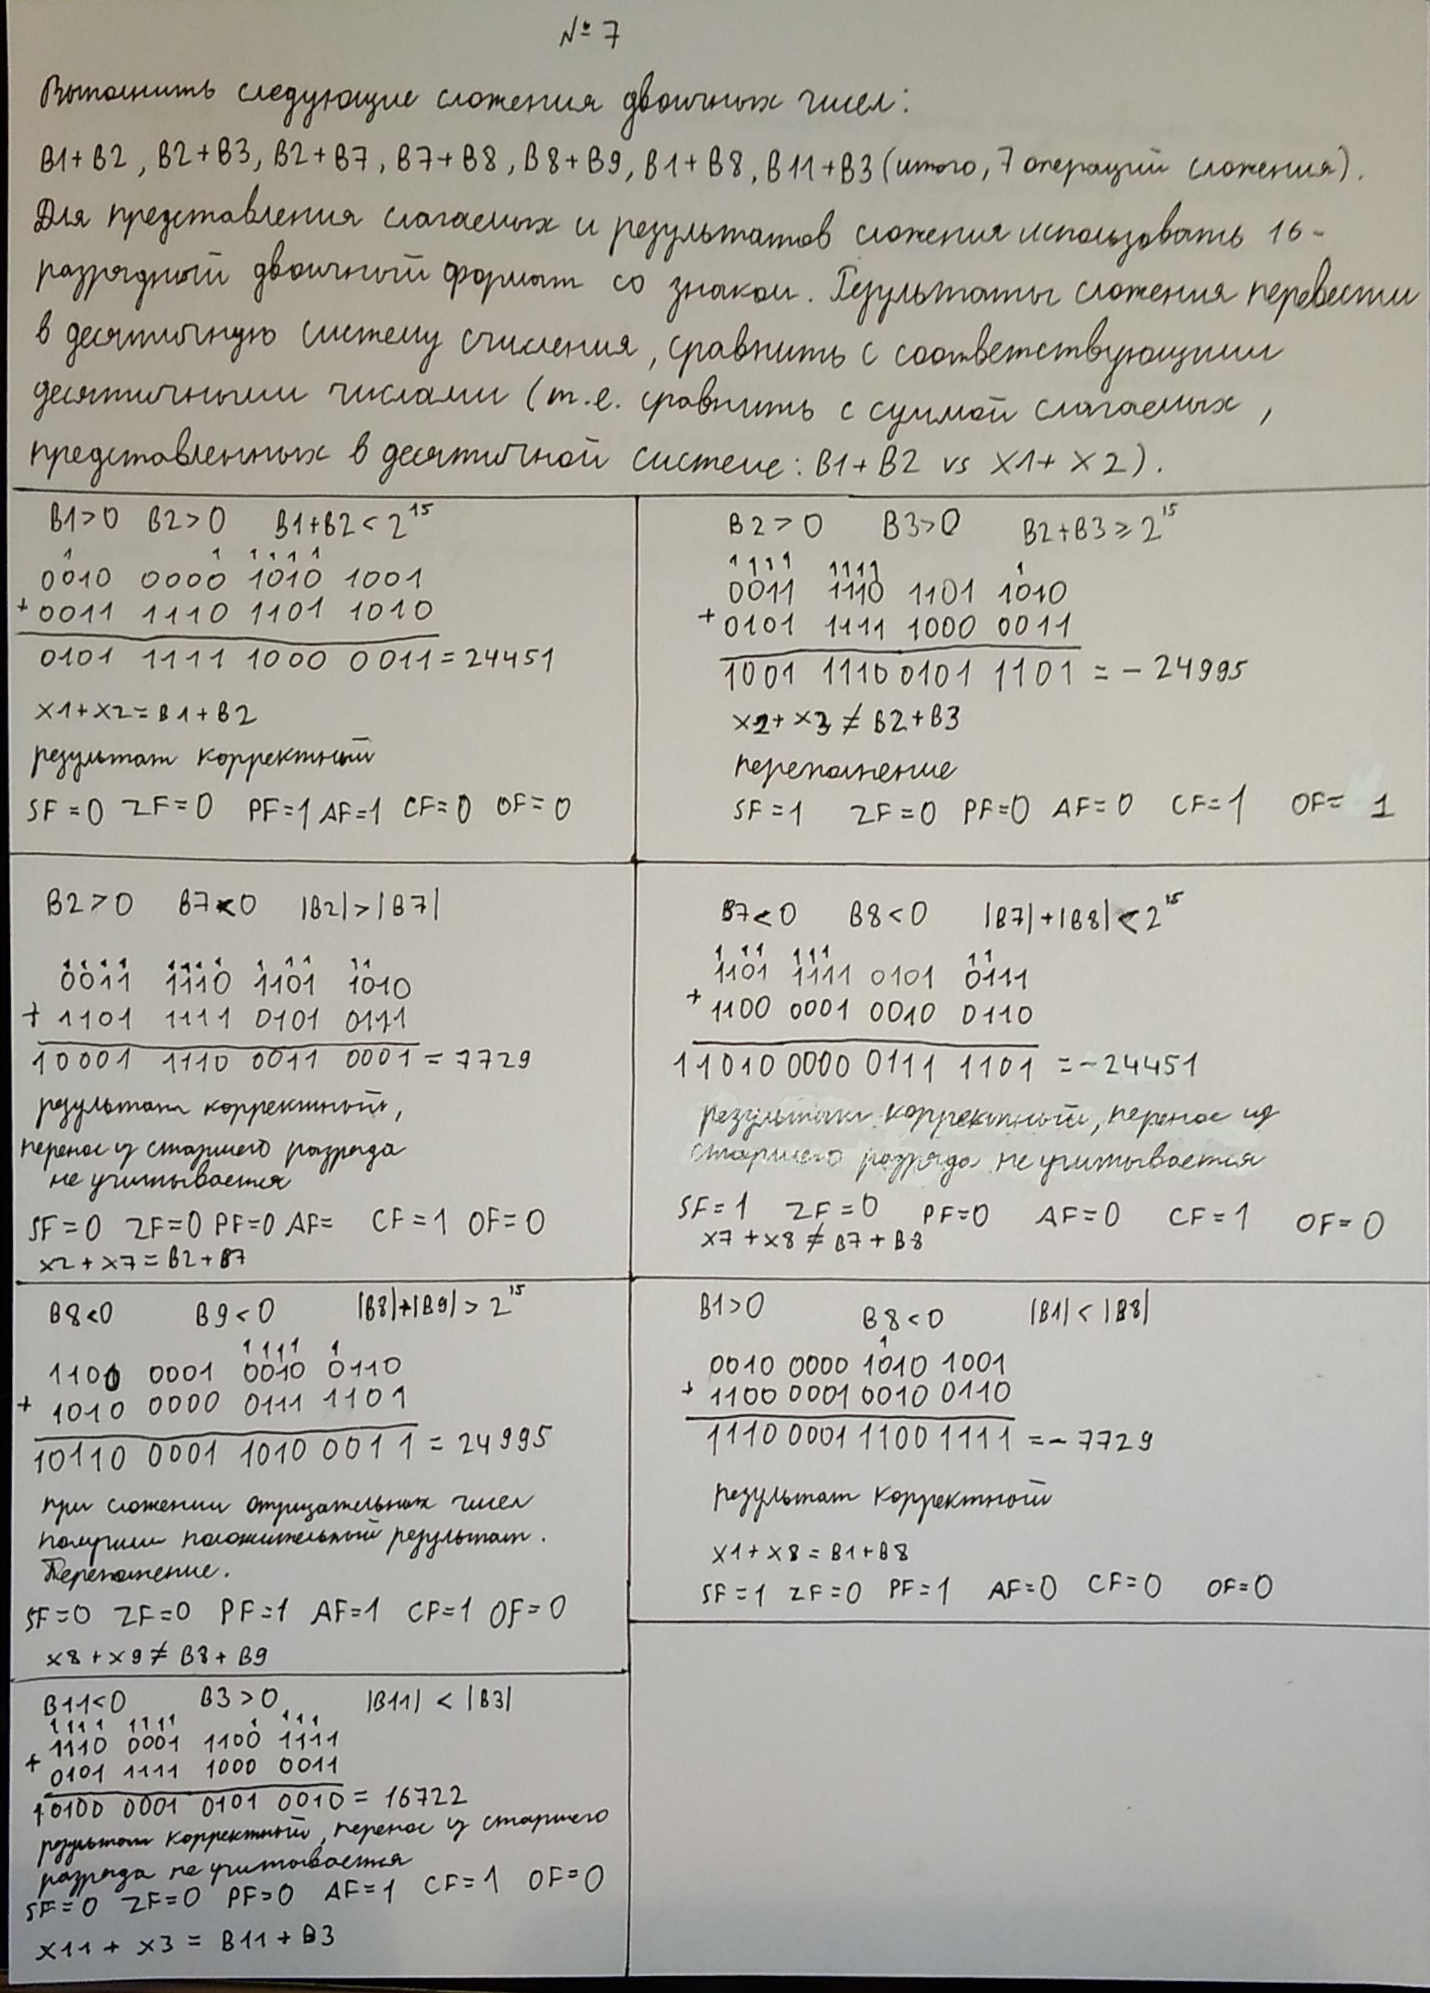 № 7
Выполнить следующие сложения двоичных чисел:
B1+B2, B2+B3, B2+B7, B7+B8, B8+B9, B1+B8, B11+B3 (итого, 7 операций сложения).
Для представления слагаемых и результатов сложения использовать 16-
разрядный двоичный формат со знаком. Результаты сложения перевести
в десятичную систему счисления, сравнить с соответствующими
десятичными числами (т.е. сравнить с суммой слагаемых,
представленных в десятичной системе: B1+B2 vs X1+X2).
B1>0 B2>0 B1+B2<2^15
1 1 1 1 1 1
0010 0000 1010 1001
+ 0011 1110 1101 1010
0101 1111 1000 0011 = 24451
X1+X2=B1+B2
результат корректный
SF=0 ZF=0 PF=1 AF=1 CF=0 OF=0
B2>0 B3>0 B2+B3≥2^15
1111 1111 1
0011 1110 1101 1010
+ 0101 1111 1000 0011
1001 1110 0101 1101 = -24995
X2+X3≠B2+B3
переполнение
SF=1 ZF=0 PF=0 AF=0 CF=1 OF=1
B2>0 B7<0 |B2|>|B7|
1111 1111 1 11 11
0011 1110 1101 1010
+ 1101 1111 0101 0111
10001 1110 0011 0001 = 7729
результат корректный,
перенос из старшего разряда
не учитывается
SF=0 ZF=0 PF=0 AF= CF=1 OF=0
X2+X7=B2+B7
B7<0 B8<0 |B7|+|B8|<2^15
1 11 111 11
1101 1111 0101 0111
+ 1100 0001 0010 0110
11010 0000 0111 1101 = -24451
результат корректный, перенос из
старшего разряда не учитывается
SF=1 ZF=0 PF=0 AF=0 CF=1 OF=0
X7+X8≠B7+B8
B8<0 B9<0 |B8|+|B9|>2^15
1111 1
1100 0001 0010 0110
+ 1010 0000 0111 1101
10110 0001 1010 0011 = 24995
при сложении отрицательных чисел
получили положительный результат.
Переполнение.
SF=0 ZF=0 PF=1 AF=1 CF=1 OF=0
X8+X9≠B8+B9
B1>0 B8<0 |B1|<|B8|
1
0010 0000 1010 1001
+ 1100 0001 0010 0110
1110 0001 1100 1111 = -7729
результат корректный
X1+X8=B1+B8
SF=1 ZF=0 PF=1 AF=0 CF=0 OF=0
B11<0 B3>0 |B11| < |B3|
1111 1111 1 111
1110 0001 1100 1111
+ 0101 1111 1000 0011
10100 0001 0101 0010 = 16722
результат корректный, перенос из старшего
разряда не учитывается
SF=0 ZF=0 PF=0 AF=1 CF=1 OF=0
X11 + X3 = B11 + B3